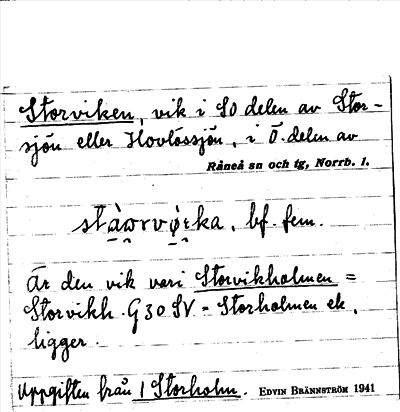 Storviken, vik i SO delen av Stor-
sjön eller Hovlössjön, i Ö. delen av
Råneå sn och tg, Norrb. l.
bf. fem.
Är den vik vari Storvikholmen =
Storvikh. G 30 SV = Storholmen ek.
ligger.
Uppgiften från 1 Storholm. EDVIN BRÄNNSTRÖM 1941